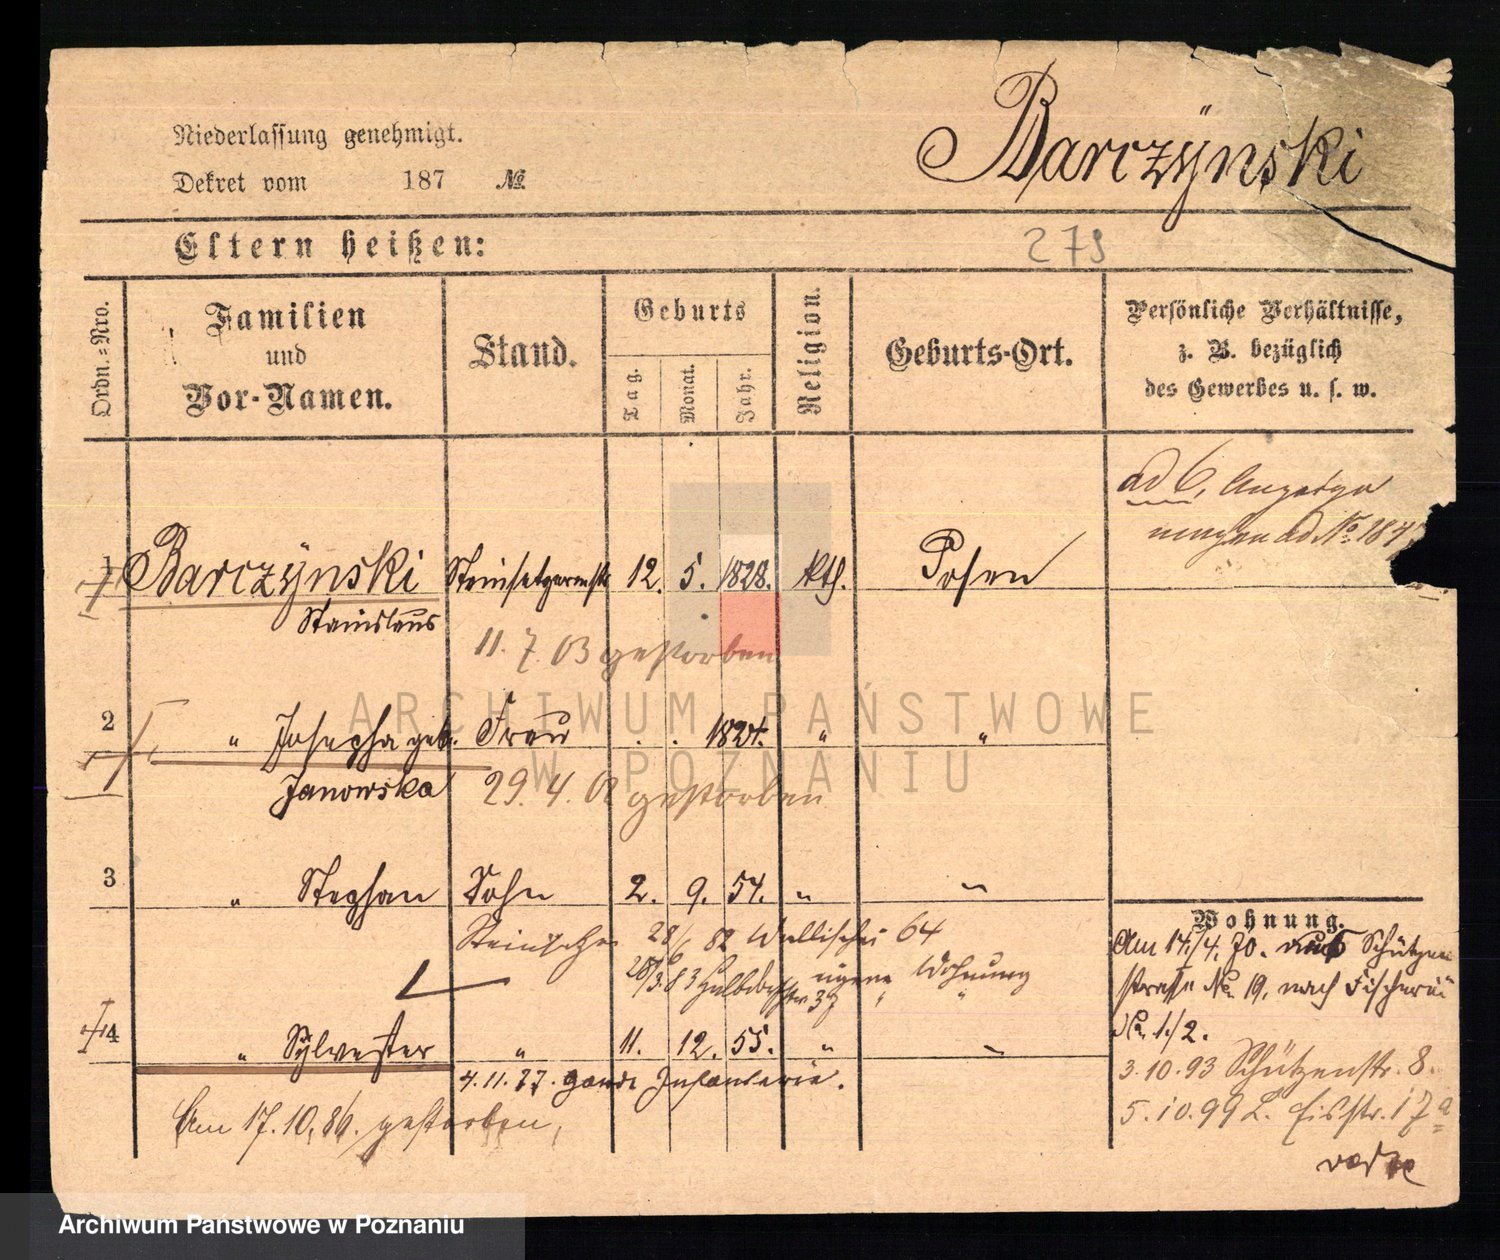 Niederlassung genehmigt.
Dekret vom 187 №
Barczÿnski
Eltern heißen:
279
Ordn.=Nro.
Familien
und
Vor-Namen.
Stand.
Geburts
Tag.
Monat.
Jahr.
Religion.
Geburts-Ort.
Persönliche Verhältnisse,
z. B. bezüglich
des Gewerbes u. s. w.
ad 6,
ad No. 184
1 Barczÿnski 12. 5. 1828. kth. Posen
Stanislaus
11. 7. 03 gestorben
2 " Josepha geb. Frau . . 1824. " "
Janowska 29. 4. 02 gestorben
3 " Stephan Sohn 2. 9. 54. " "
Steinsetzer 28/6 82 Wallischei 64
28/3. 83 37 eigene Wohnung
4 " Sylvester " 11. 12. 55. " "
4. 11. 77. Garde Infanterie.
Am 17. 10. 86. gestorben,
Wohnung.
Am 14./4. 70. aus Schützen
straße No. 19, nach Fischerei
No. 1./2.
3. 10. 93 Schützenstr. 8.
5. 10. 99 L. 17a
ARCHIWUM PAŃSTWOWE
W POZNANIU
Archiwum Państwowe w Poznaniu